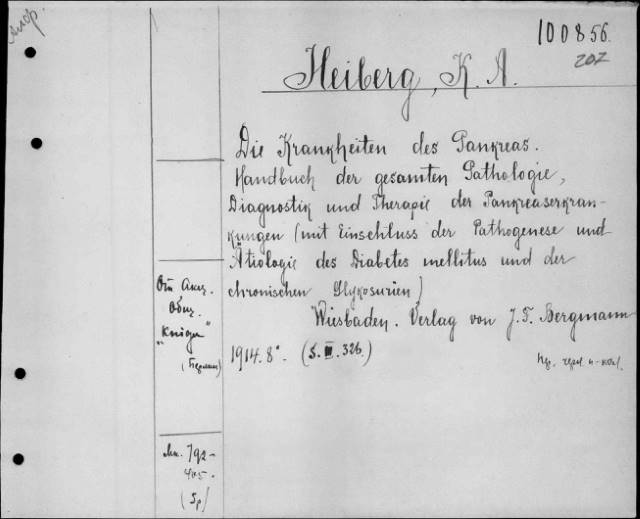 100856.
202
Heiberg, K. A.
Die Krankheiten des Pankreas.
Handbuch der gesamten Pathologie,
Diagnostik und Therapie der Pankreaserkran-
kungen (mit Einschluss der Pathogenese und
Ätiologie des Diabetes mellitus und der
chronischen Glykosurien)
Wiesbaden. Verlag von J. F. Bergmann
1914. 8°. (S. III. 326.)
От Акц.
Общ.
"Книга"